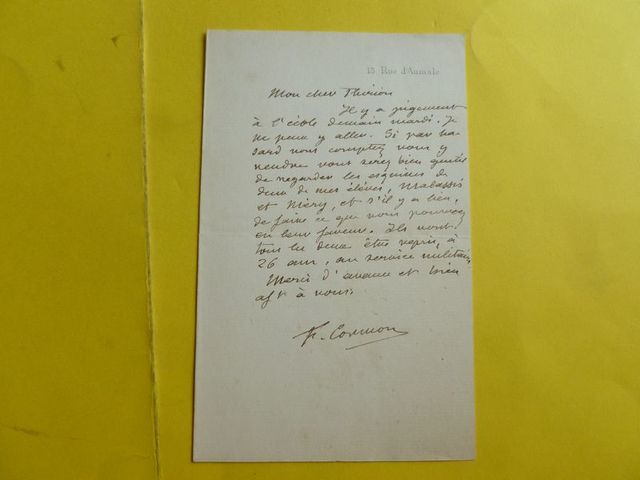 15 Rue d'Aumale
Mon cher Thirion
Il y a jugement
à l'école demain mardi. Je
ne peux y aller. Si par ha-
sard vous comptez vous y
rendre vous serez bien gentil
de regarder les esquisses de
deux de mes élèves, Malassis
et Méry, et s'il y a lieu,
de faire ce que vous pourrez
en leur faveur. Ils vont
tous les deux être repris, à
26 ans, au service militaire.
Merci d'avance et bien
aff t à vous.
F. Cormon